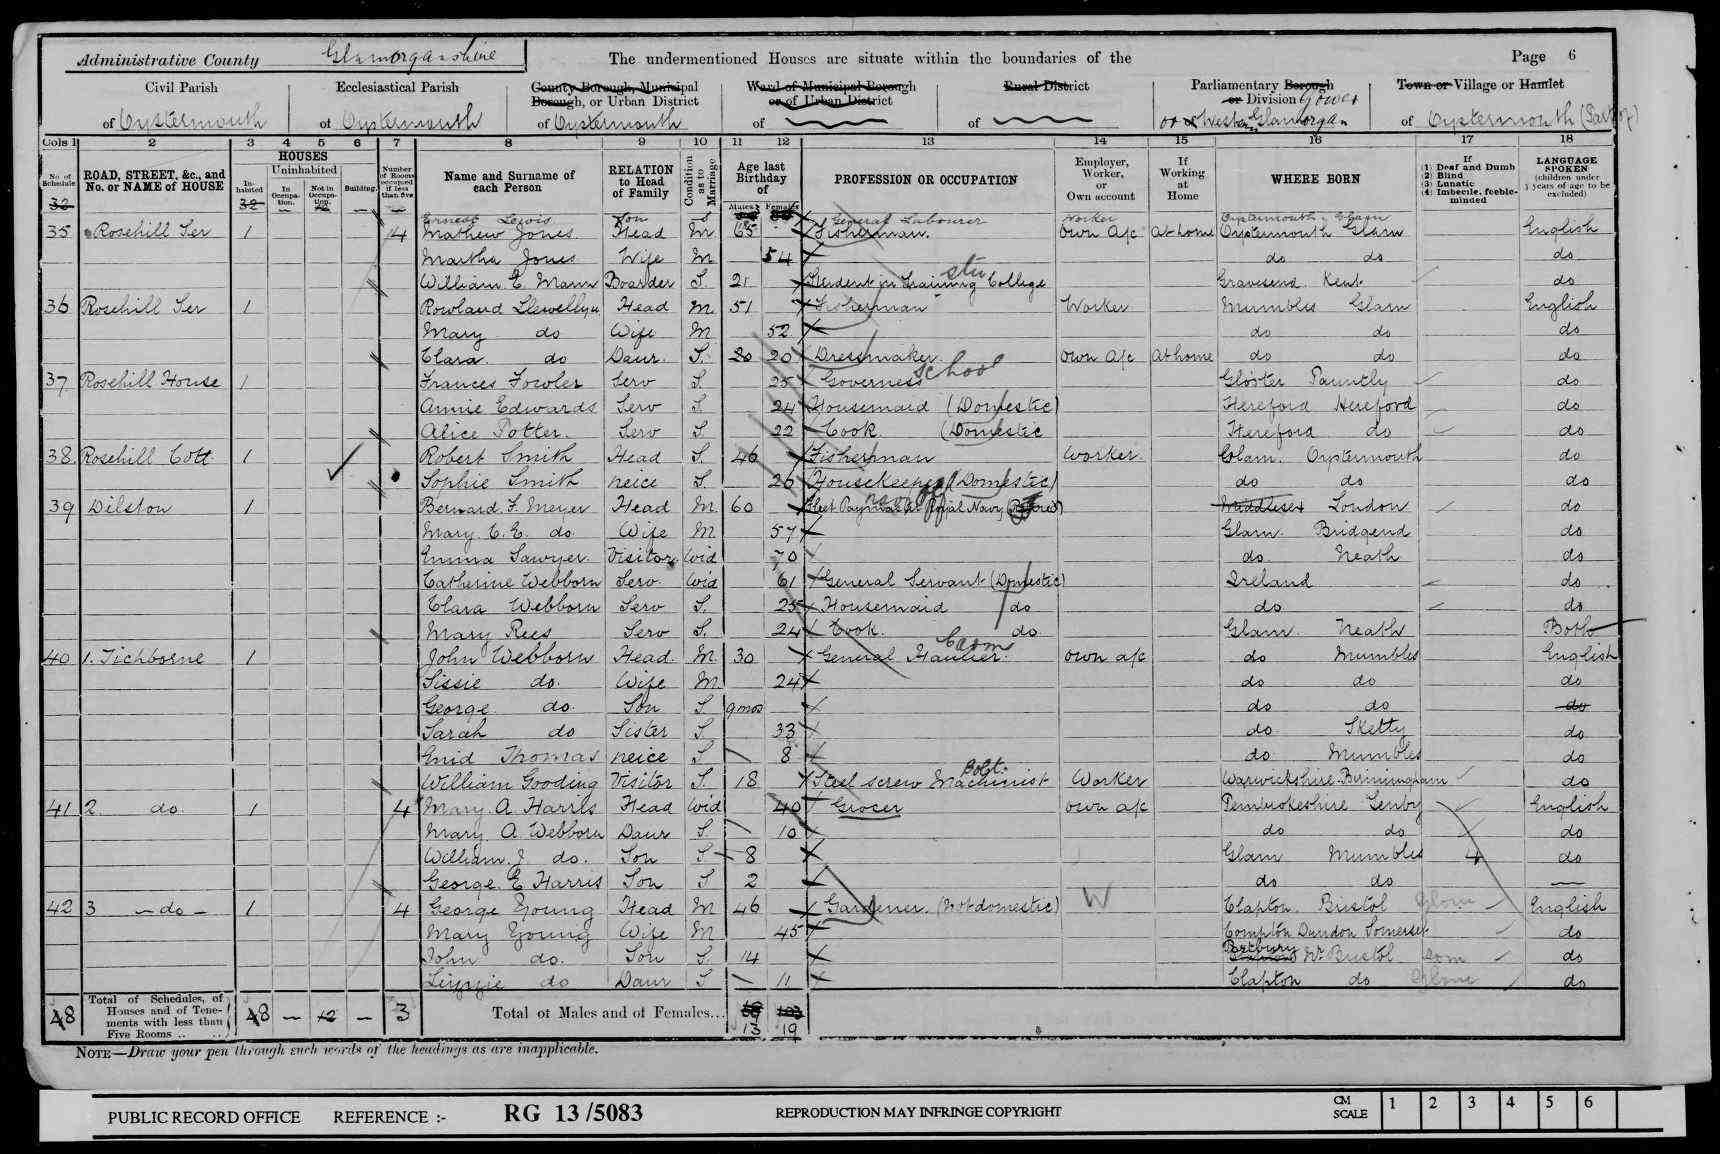 Administrative County Glamorganshire The undermentioned Houses are situate within the boundaries of the Page 6
Civil Parish Ecclesiastical Parish County Borough, Municipal Borough, or Urban District Ward of Municipal Borough or of Urban District Rural District Parliamentary Borough or Division Gower Town or Village or Hamlet
of Oystermouth of Oystermouth of Oystermouth of of Western Glamorgan of Oystermouth (Part of)
Cols 1 2 3 4 5 6 7 8 9 10 11 12 13 14 15 16 17 18
No. of Schedule ROAD, STREET, &c., and No. or NAME of HOUSE HOUSES Inhabited Uninhabited In Occupation. Not in Occupation. Building. Number of Rooms occupied if less than five Name and Surname of each Person RELATION to Head of Family Condition as to Marriage Age last Birthday of Males Females PROFESSION OR OCCUPATION Employer, Worker, or Own account If Working at Home WHERE BORN If (1) Deaf and Dumb (2) Blind (3) Lunatic (4) Imbecile, feeble-minded LANGUAGE SPOKEN (children under 3 years of age to be excluded)
32 32 12
Ernest Lewis Son S General Labourer Worker Oystermouth Glam
35 Rosehill Ter 1 4 Mathew Jones Head M 65 Fisherman. Own A/c At home Oystermouth Glam English
Martha Jones Wife M 54 do do do
William E. Mann Boarder S. 21 Student in Training College stu Gravesend Kent do
36 Rosehill Ter 1 Rowland Llewellyn Head M 51 Fisherman Worker Mumbles Glam English
Mary do Wife M 52 do do do
Clara do Daur. S. 20 20 Dressmaker. Own A/c At home do do do
37 Rosehill House 1 Frances Fowler Serv S. 25 Governess School Glo'ster Pauntly do
Annie Edwards Serv S. 24 Housemaid (Domestic) Hereford Hereford do
Alice Potter. Serv S 22 Cook (Domestic Hereford do do
38 Rosehill Cott 1 Robert Smith Head S. 46 Fisherman Worker. Glam. Oystermouth do
Sophie Smith neice S. 26 Housekeeper (Domestic) do do do
39 Dilston 1 Bernard F. Meyer Head M. 60 Fleet Paymaster Royal Navy (Retired) Middlesex London do
Mary C. E. do. Wife M 57 Glam. Bridgend do
Emma Sawyer. Visitor Wid 70 do Neath do
Catherine Webborn Serv. Wid 61 General Servant (Domestic) Ireland do
Clara Webborn Serv S. 25 Housemaid do do do
Mary Rees Serv S. 24 Cook. do Glam. Neath Both
40 1. Tichborne 1 John Webborn Head. M. 30 General Haulier. Own a/c do Mumbles English
Sissie do. Wife M. 24 do do do
George do. Son S 9 mos do do do
Sarah do Sister S 33 do Sketty do
Enid Thomas neice S 8 do Mumbles do
William Gooding Visitor S. 18 Steel screw Bolt. Machinist Worker Warwickshire. Birmingham do
41 2. do 1 4 Mary. A Harris Head Wid 40 Grocer own a/c Pembrokeshire Tenby English
Mary A. Webborn Daur S. 10 do do do
William. J do. Son S 8 Glam Mumbles 4 do
George. E Harris Son S 2 do do
42 3 do 1 4 George Young Head M 46 Gardener. (Not domestic) W Clapton. Bristol English
Mary Young Wife M 45 Compton Dundon Somerset do
John do. Son S. 14 Portbury Nr Bristol Som do
Lizzie do Daur S 11 Clapton do do
48 Total of Schedules, of Houses and of Tenements with less than Five Rooms .. .. 48 12 3 Total of Males and of Females... 13 19
NOTE—Draw your pen through such words of the headings as are inapplicable.
PUBLIC RECORD OFFICE REFERENCE :- RG 13/5083 REPRODUCTION MAY INFRINGE COPYRIGHT CM SCALE 1 2 3 4 5 6